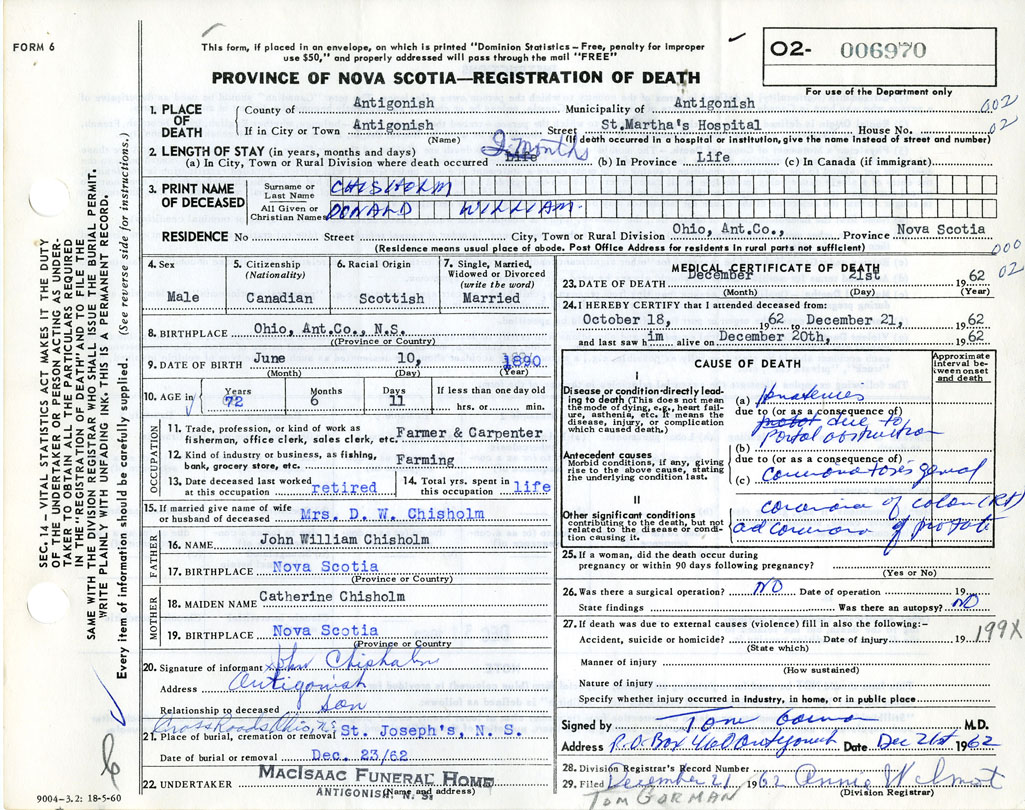 FORM 6
This form, if placed in an envelope, on which is printed "Dominion Statistics – Free, penalty for improper
use $50," and properly addressed will pass through the mail "FREE"
PROVINCE OF NOVA SCOTIA—REGISTRATION OF DEATH
O2- 006970
For use of the Department only
SEC. 14 – VITAL STATISTICS ACT MAKES IT THE DUTY
OF THE UNDERTAKER OR PERSON ACTING AS UNDER-
TAKER TO OBTAIN ALL THE PARTICULARS REQUIRED
IN THE "REGISTRATION OF DEATH" AND TO FILE THE
SAME WITH THE DIVISION REGISTRAR WHO SHALL ISSUE THE BURIAL PERMIT.
WRITE PLAINLY WITH UNFADING INK. THIS IS A PERMANENT RECORD.
Every item of information should be carefully supplied. (See reverse side for instructions.)
1. PLACE OF DEATH
County of Antigonish Municipality of Antigonish 002
If in City or Town Antigonish Street St.Martha's Hospital House No. 02
(Name) (If death occurred in a hospital or institution, give the name instead of street and number)
2. LENGTH OF STAY (in years, months and days)
(a) In City, Town or Rural Division where death occurred Life 2 months (b) In Province Life (c) In Canada (if immigrant)
3. PRINT NAME OF DECEASED
Surname or Last Name CHISHOLM
All Given or Christian Names DONALD WILLIAM
RESIDENCE No Street City, Town or Rural Division Ohio, Ant.Co., Province Nova Scotia
(Residence means usual place of abode. Post Office Address for residents in rural parts not sufficient)
000
02
4. Sex
Male
5. Citizenship (Nationality)
Canadian
6. Racial Origin
Scottish
7. Single, Married, Widowed or Divorced (write the word)
Married
8. BIRTHPLACE Ohio, Ant.Co., N.S.
(Province or Country)
9. DATE OF BIRTH June 10, 1890
(Month) (Day) (Year)
10. AGE in Years 72 Months 6 Days 11 If less than one day old
hrs. or min.
OCCUPATION
11. Trade, profession, or kind of work as
fisherman, office clerk, sales clerk, etc. Farmer & Carpenter
12. Kind of industry or business, as fishing,
bank, grocery store, etc. Farming
13. Date deceased last worked
at this occupation retired
14. Total yrs. spent in
this occupation life
15. If married give name of wife
or husband of deceased Mrs. D. W. Chisholm
FATHER
16. NAME John William Chisholm
17. BIRTHPLACE Nova Scotia
(Province or Country)
MOTHER
18. MAIDEN NAME Catherine Chisholm
19. BIRTHPLACE Nova Scotia
(Province or Country)
20. Signature of informant John Chisholm
Address Antigonish
Relationship to deceased Son
Cross Roads Ohio, N.S.
21. Place of burial, cremation or removal St. Joseph's, N. S.
Date of burial or removal Dec. 23/62
22. UNDERTAKER MacIsaac Funeral Home
ANTIGONISH, N. S.
(Name and address)
9004–3.2: 18-5-60
MEDICAL CERTIFICATE OF DEATH
23. DATE OF DEATH December 21st 1962
(Month) (Day) (Year)
24. I HEREBY CERTIFY that I attended deceased from:
October 18, 1962 to December 21, 1962
and last saw him alive on December 20th, 1962
CAUSE OF DEATH
Approximate interval between onset and death
I
Disease or condition directly lead-
ing to death (This does not mean
the mode of dying, e.g., heart fail-
ure, asthenia, etc. It means the
disease, injury, or complication
which caused death.)
(a)
due to (or as a consequence of)
due to
Portal obstruction
Antecedent causes
Morbid conditions, if any, giving
rise to the above cause, stating
the underlying condition last.
(b)
due to (or as a consequence of)
(c)
II
Other significant conditions
contributing to the death, but not
related to the disease or condi-
tion causing it.
of colon (Rt)
25. If a woman, did the death occur during
pregnancy or within 90 days following pregnancy?
(Yes or No)
26. Was there a surgical operation? NO Date of operation 19
State findings Was there an autopsy? NO
27. If death was due to external causes (violence) fill in also the following:–
Accident, suicide or homicide? Date of injury 19
(State which)
199X
Manner of injury
(How sustained)
Nature of injury
Specify whether injury occurred in industry, in home, or in public place
Signed by Tom Gorman M.D.
Address P.O. Box 460 Antigonish Date Dec 21st 1962
28. Division Registrar's Record Number
29. Filed December 21 1962 Annie
(Division Registrar)
TOM GORMAN